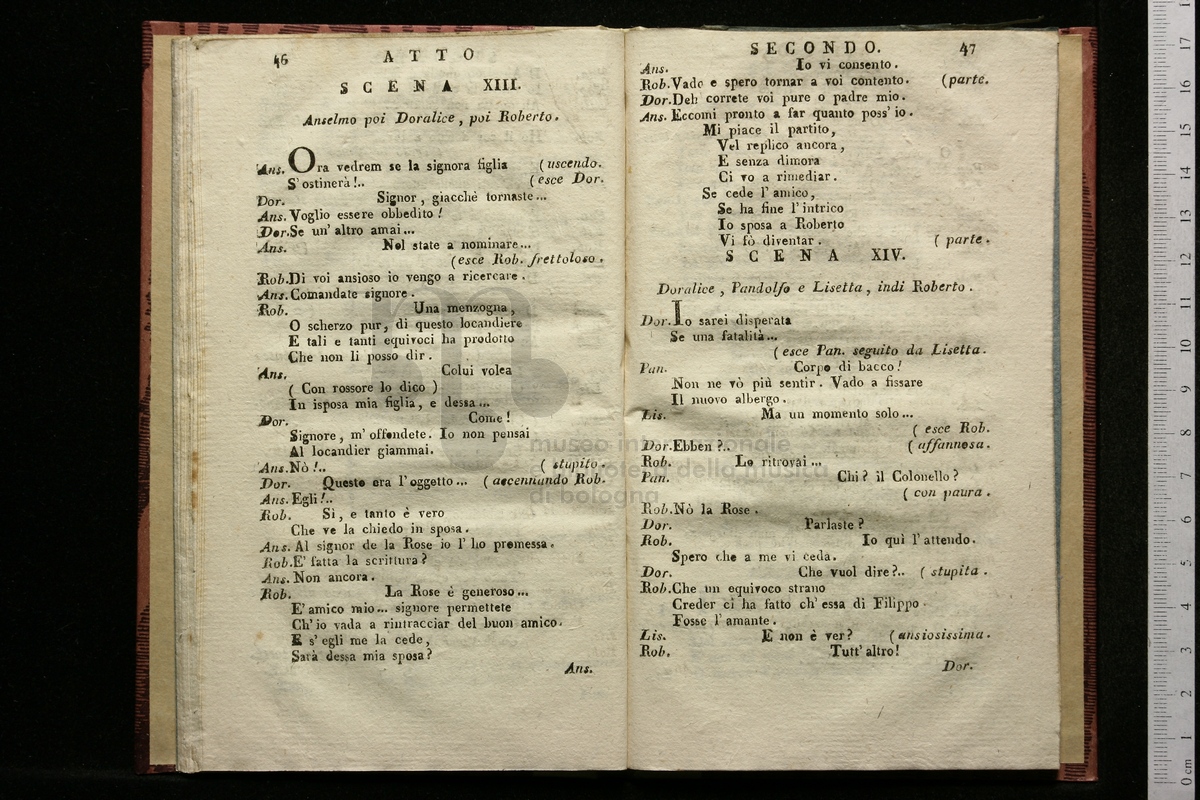 46 ATTO
SCENA XIII.
Anselmo poi Doralice, poi Roberto.
Ans. Ora vedrem se la signora figlia (uscendo.
S'ostinerà!.. (esce Dor.
Dor. Signor, giacchè tornaste...
Ans. Voglio essere obbedito!
Dor. Se un' altro amai...
Ans. Nol state a nominare...
(esce Rob. frettoloso.
Rob. Di voi ansioso io vengo a ricercare.
Ans. Comandate signore.
Rob. Una menzogna,
O scherzo pur, di questo locandiere
E tali e tanti equivoci ha prodotto
Che non li posso dir.
Ans. Colui volea
( Con rossore lo dico )
In isposa mia figlia, e dessa...
Dor. Come!
Signore, m' offendete. Io non pensai
Al locandier giammai.
Ans. Nò!.. ( stupito.
Dor. Questo era l'oggetto... (accennando Rob.
Ans. Egli!..
Rob. Si, e tanto è vero
Che ve la chiedo in sposa.
Ans. Al signor de la Rose io l' ho promessa.
Rob. E' fatta la scrittura?
Ans. Non ancora.
Rob. La Rose è generoso...
E' amico mio... signore permettete
Ch' io vada a rintracciar del buon amico.
E s' egli me la cede,
Sarà dessa mia sposa?
Ans.
SECONDO. 47
Ans. Io vi consento.
Rob. Vado e spero tornar a voi contento. (parte.
Dor. Deh correte voi pure o padre mio.
Ans. Eccomi pronto a far quanto poss' io.
Mi piace il partito,
Vel replico ancora,
E senza dimora
Ci vo a rimediar.
Se cede l' amico,
Se ha fine l' intrico
Io sposa a Roberto
Vi fò diventar. ( parte.
SCENA XIV.
Doralice, Pandolfo e Lisetta, indi Roberto.
Dor. Io sarei disperata
Se una fatalità...
(esce Pan. seguito da Lisetta.
Pan. Corpo di bacco!
Non ne vò più sentir. Vado a fissare
Il nuovo albergo.
Lis. Ma un momento solo...
( esce Rob.
Dor. Ebben?.. (affannosa.
Rob. Lo ritrovai...
Pan. Chi? il Colonello?
( con paura.
Rob. Nò la Rose.
Dor. Parlaste?
Rob. Io quì l' attendo.
Spero che a me vi ceda.
Dor. Che vuol dire?.. ( stupita.
Rob. Che un equivoco strano
Creder ci ha fatto ch' essa di Filippo
Fosse l' amante.
Lis. E non è ver? (ansiosissima.
Rob. Tutt' altro!
Dor.
museo internazionale
e biblioteca della musica
di bologna